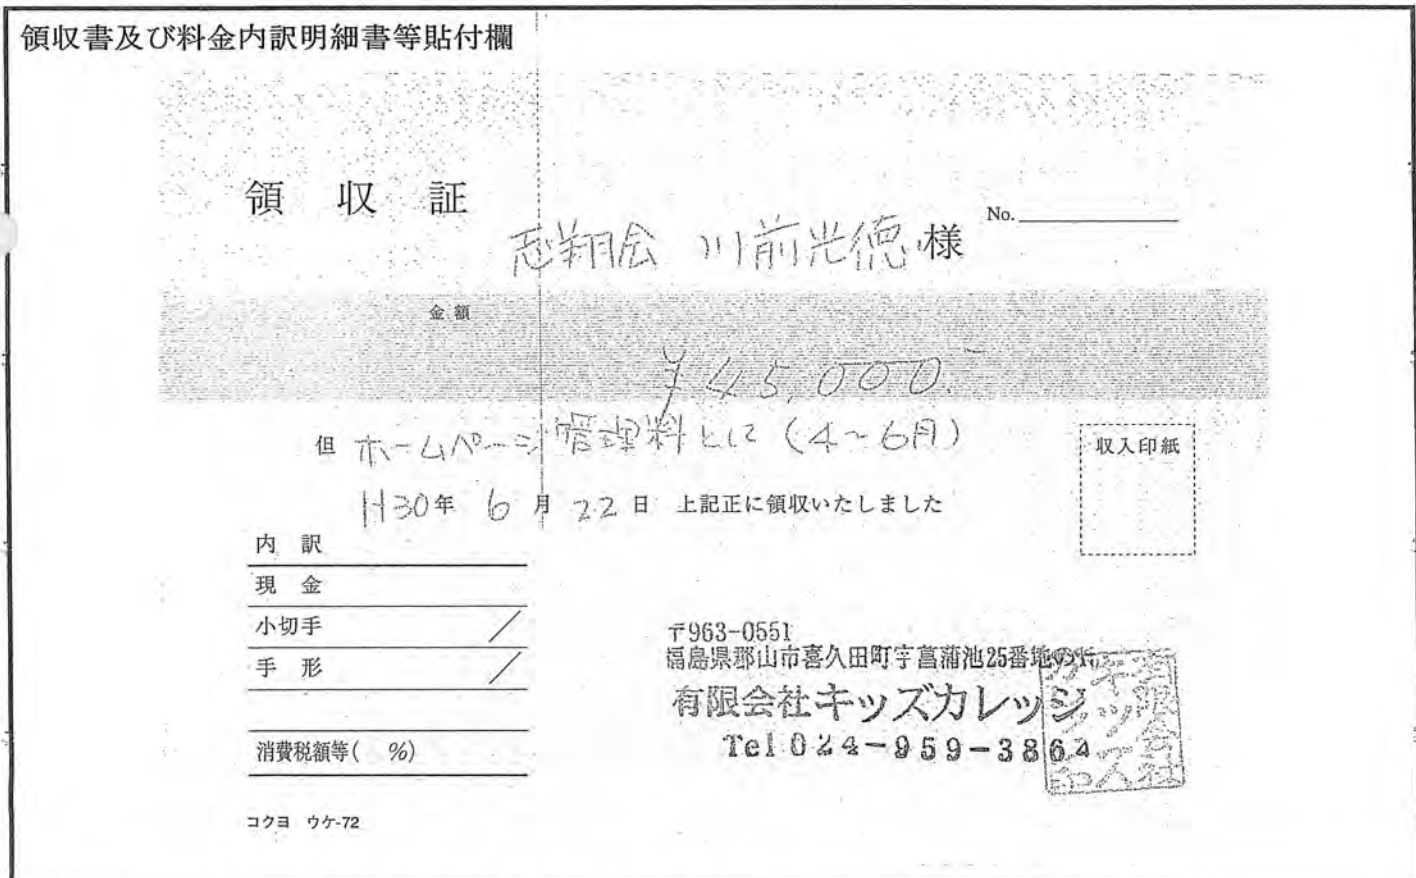 領収書及び料金内訳明細書等貼付欄
領収証
No.
志翔会 川前光徳 様
金額
¥45,000.-
但 ホームページ管理料として(4~6月)
収入印紙
H30年 6月 22日 上記正に領収いたしました
内訳
現金
小切手 /
手形 /
消費税額等( %)
〒963-0551
福島県郡山市喜久田町字菖蒲池25番地の
有限会社キッズカレッジ
Tel 024-959-3864
有限会社
キッズカ
コクヨ ウケ-72